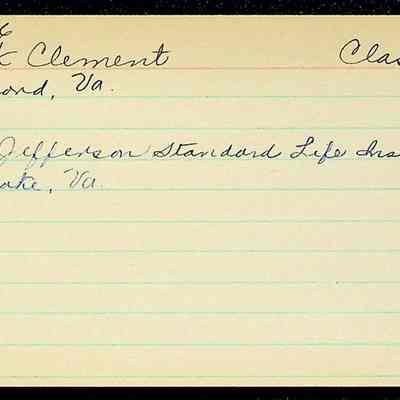 k Clement Clas
ond, Va.
Jefferson Standard Life Ins
oke, Va.